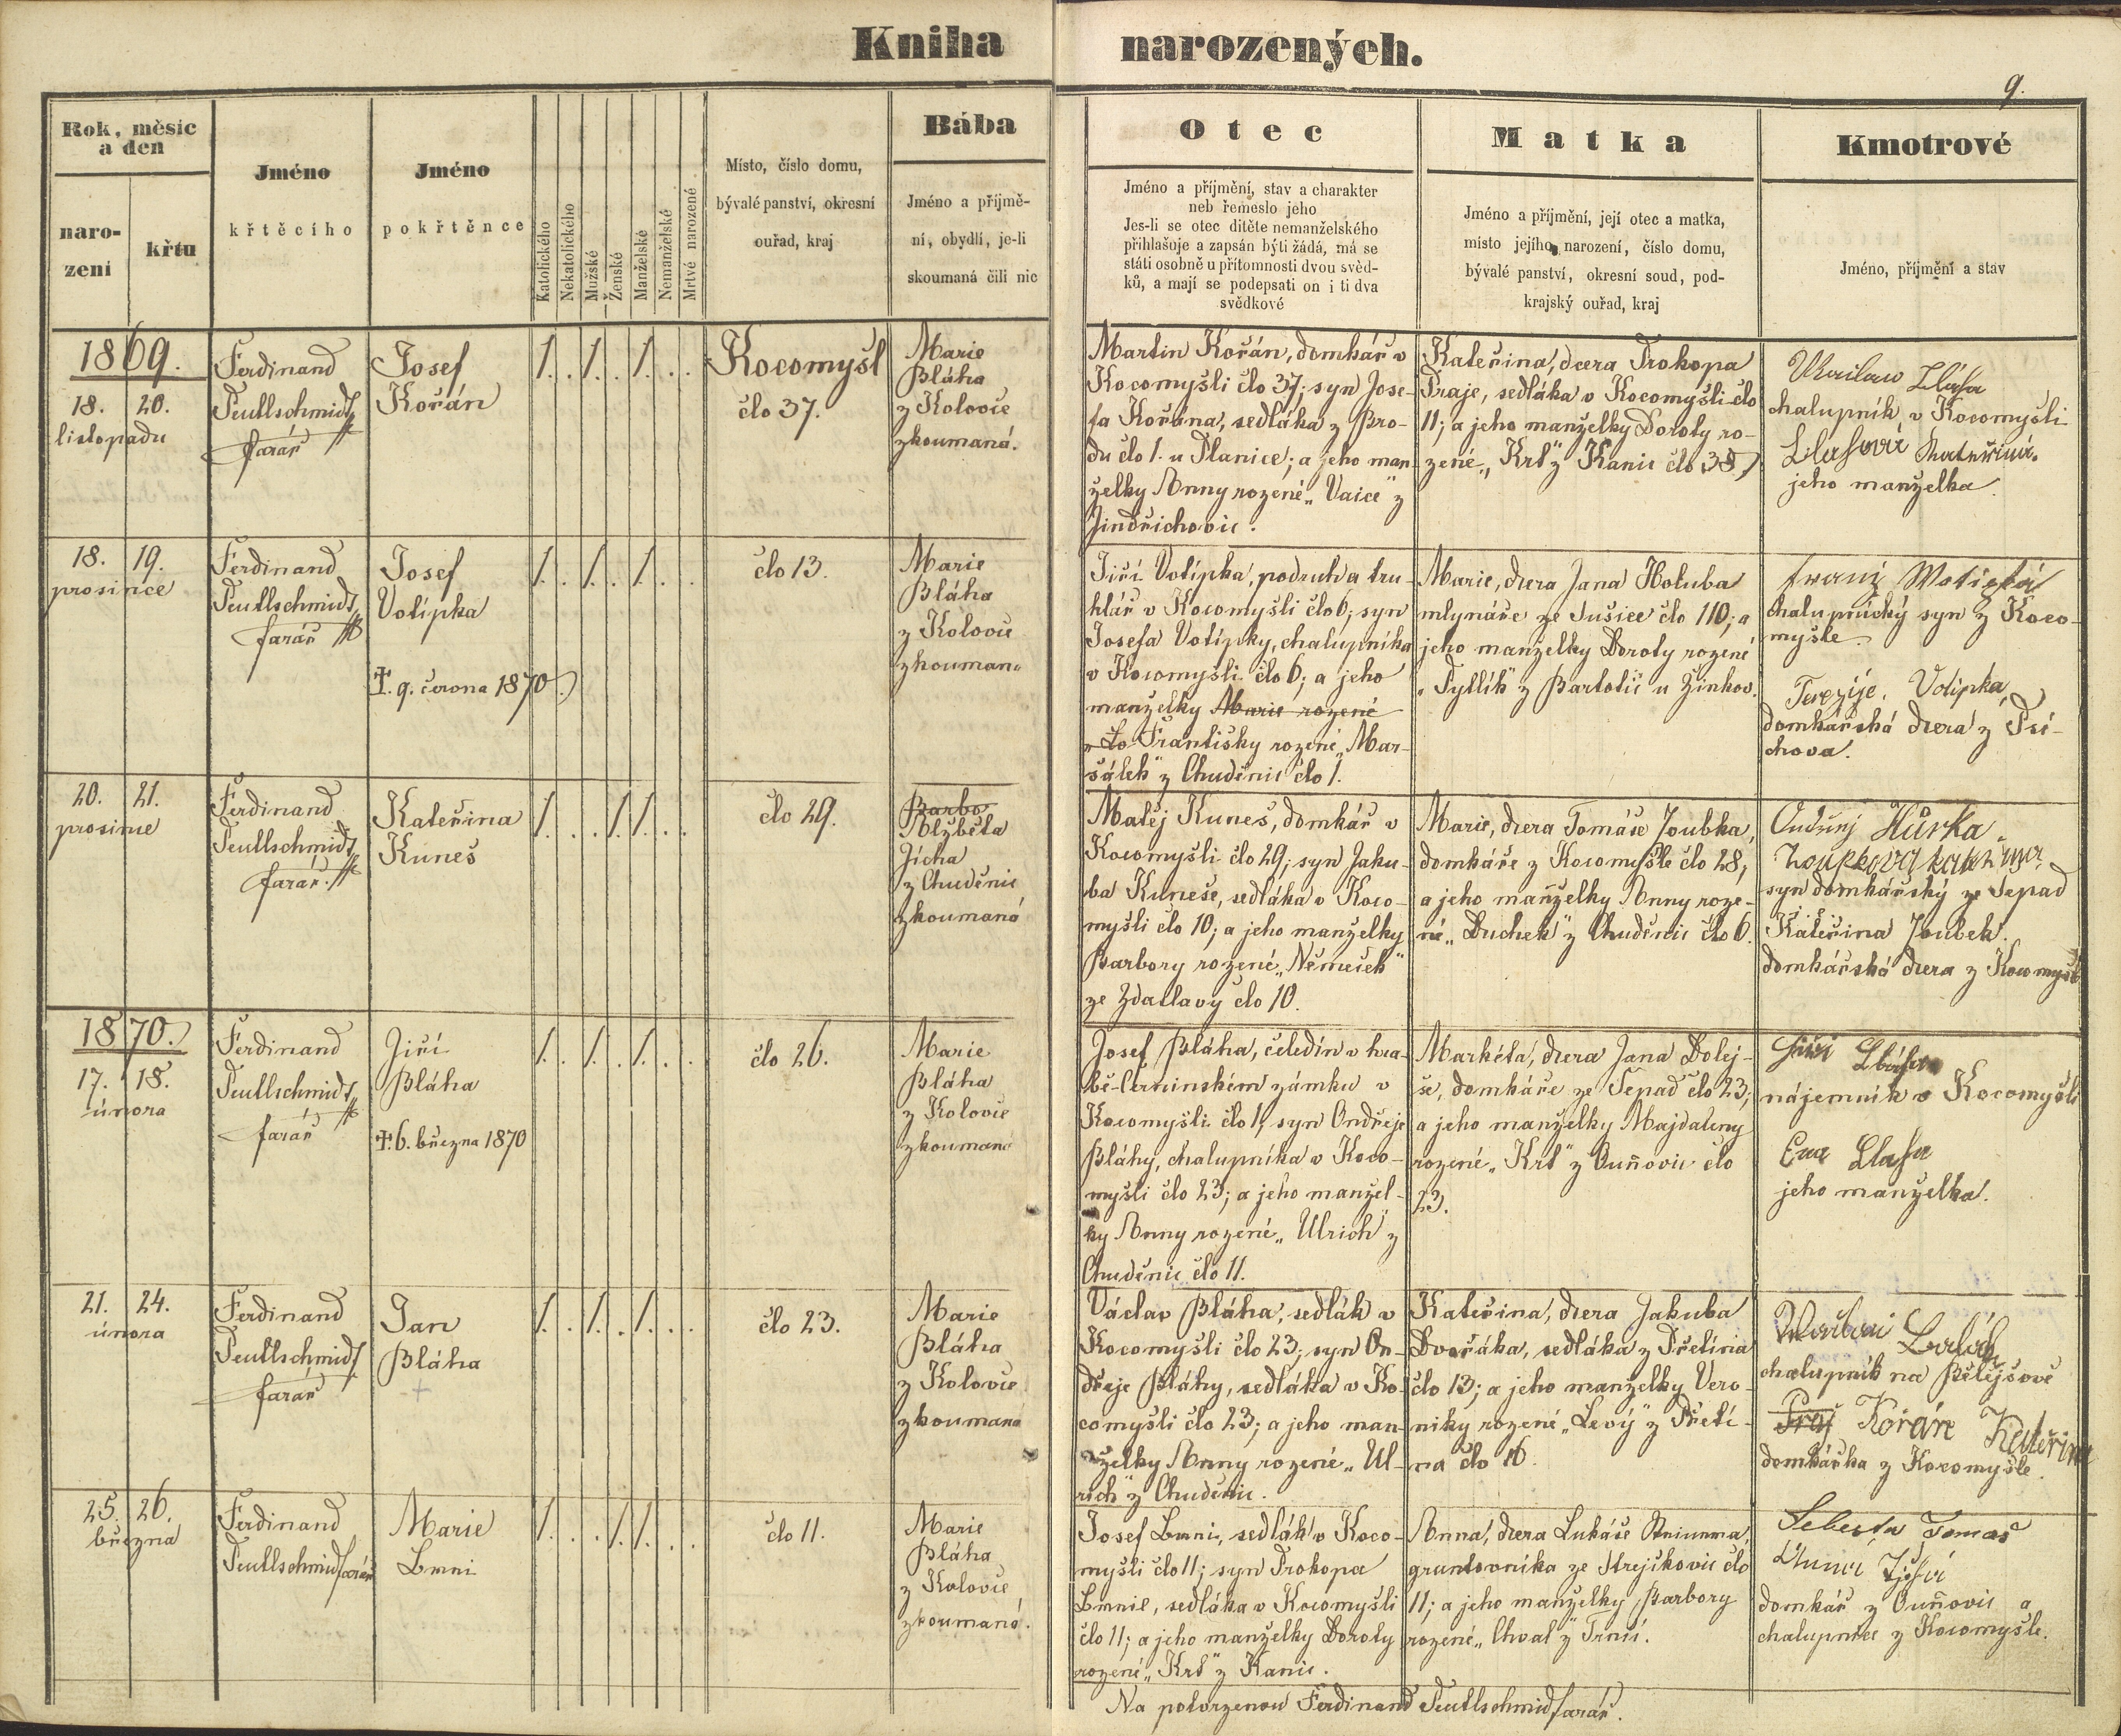 Kniha
narozených.
9.
Rok, měsíc
a den
naro-
zení
křtu
Jméno
křtěcího
Jméno
pokřtěnce
Katolického
Nekatolického
Mužské
Ženské
Manželské
Nemanželské
Mrtvé narozené
Místo, číslo domu,
bývalé panství, okresní
ouřad, kraj
Bába
Jméno a příjmě-
ní, obydlí, je-li
skoumaná čili nic
Otec
Jméno a příjmění, stav a charakter
neb řemeslo jeho
Jes-li se otec dítěte nemanželského
přihlašuje a zapsán býti žádá, má se
státi osobně u přítomnosti dvou svěd-
ků, a mají se podepsati on i ti dva
svědkové
Matka
Jméno a příjmění, její otec a matka,
místo jejího narození, číslo domu,
bývalé panství, okresní soud, pod-
krajský ouřad, kraj
Kmotrové
Jméno, příjmění a stav
1869.
18. 20.
listopadu
Ferdinand
Teutlschmidt
farář
Josef
Kořán
1. . 1. . 1. . .
Kocomyšl
člo 37.
Marie
Bláha
z Kolovče
zkoumaná.
Martin Kořán, domkář v
Kocomyšli člo 37; syn Jose-
fa Kořána, sedláka z Bro-
du člo 1. u Planice; a jeho man-
želky Anny rozené „Vaice" z
Jindřichovic.
Kateřina, dcera Prokopa
Praje, sedláka v Kocomyšli člo
11; a jeho manželky Doroty ro-
zené „Krs" z Kanic člo 38.
chalupník v Kocomyšli
jeho manželka.
18. 19.
prosince
Ferdinand
Teutlschmidt
farář
Josef
Votípka
†. 9. června 1870.
1. . 1. . 1. . .
člo 13.
Marie
Bláha
z Kolovče
zkouman
Jiří Votípka, podruh a tru-
hlář v Kocomyšli člo 6; syn
Josefa Votípky, chalupníka
v Kocomyšli člo 6; a jeho
manželky Marie rozené
Františky rozené „Mar-
šálek" z Chuděnic člo 1.
Marie, dcera Jana Holuba
mlynáře ze Sušice člo 110; a
jeho manželky Doroty rozené
„Pytlík" z Bartolic u Žinkov.
Franz Wotipka
chalupnický syn z Koco-
myšle
Terezije. Votipka,
domkářská dcera z Psí-
chova.
20. 21.
prosince
Ferdinand
Teutlschmidt
farář.
Kateřina
Kuneš
1. . . 1. 1. . .
člo 29.
Barbo
Alžběta
Jícha
z Chuděnic
zkoumaná
Matěj Kuneš, domkář v
Kocomyšli člo 29; syn Jaku-
ba Kuneše, sedláka v Koco-
myšli člo 10; a jeho manželky
Barbory rozené „Němeček"
ze Zdaslavy člo 10.
Marie, dcera Tomáše Zoubka,
domkáře z Kocomyšle člo 28;
a jeho manželky Anny roze-
né „Duchek" z Chuděnic člo 6.
Ondřej Hůrka.
Zoupkova Kateřina
syn domkářský ze Sepad
Kateřina Zoubek.
domkářská dcera z Kocomyšle
1870.
17. 18.
února
Ferdinand
Teutlschmidt
farář
Jiří
Bláha
†. 6. března 1870
1. . 1. . 1. . .
člo 26.
Marie
Bláha
z Kolovče
zkoumaná
Josef Bláha, čeledín v hra-
bě-Černinském zámku v
Kocomyšli člo 1; syn Ondřeje
Bláhy, chalupníka v Koco-
myšli člo 23; a jeho manžel-
ky Anny rozené „Ulrich" z
Chuděnic člo 11.
Markéta, dcera Jana Dolej-
še, domkáře ze Sepad člo 23;
a jeho manželky Majdaleny
rozené „Krs" z Ouňovic člo
23.
nájemník v Kocomyšli
jeho manželka.
21. 24.
února
Ferdinand
Teutlschmidt
farář
Jan
Bláha
1. . 1. . 1. . .
člo 23.
Marie
Bláha
z Kolovče
zkoumaná
Václav Bláha, sedlák v
Kocomyšli člo 23; syn On-
dřeje Bláhy, sedláka v Ko-
comyšli člo 23; a jeho man-
želky Anny rozené „Ul-
rich" z Chuděnic.
Kateřina, dcera Jakuba
Dvořáka, sedláka z Přetína
člo 13; a jeho manželky Vero-
niky rozené „Levý" z Přetí-
na člo 16.
chalupník na Bělejšově
Praj Kořán Kateřina
domkářka z Kocomyšle.
25. 26.
března
Ferdinand
Teutlschmid farář
Marie
1. . . 1. 1. . .
člo 11.
Marie
Bláha
z Kolovče
zkoumaná.
sedlák v Koco-
myšli člo 11; syn Prokopa
sedláka v Kocomyšli
člo 11; a jeho manželky Doroty
rozené „Krs" z Kanic.
Anna, dcera Lukáše
gruntovníka ze Strejčkovic člo
11; a jeho manželky Barbory
rozené „Chval" z Trnčí.
Šebesta Tomáš
domkář z Ouňovic a
chalupnice z Kocomyšle.
Na potvrzenou Ferdinand Teutlschmid farář.